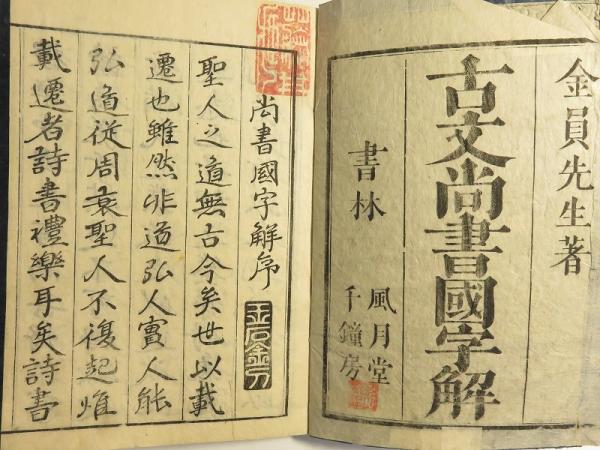 金員先生著
古文尚書國字解
書林
風月堂
千鐘房
尚書國字解序
聖人之道無古今矣世以載
遷也雖然非道弘人實人能
弘道從周衰聖人不復起惟
載遷者詩書禮樂耳矣詩書